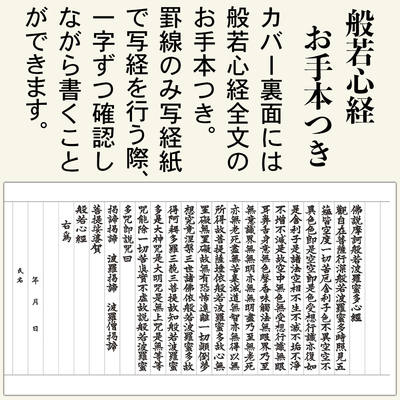 般若心経
お手本つき
カバー裏面には
般若心経全文の
お手本つき。
罫線のみ写経紙
で写経を行う際、
一字ずつ確認し
ながら書くこと
ができます。
佛説摩訶般若波羅蜜多心経
観自在菩薩行深般若波羅蜜多時照見五
蘊皆空度一切苦厄舎利子色不異空空不
異色色即是空空即是色受想行識亦復如
是舎利子是諸法空相不生不滅不垢不浄
不増不減是故空中無色無受想行識無眼
耳鼻舌身意無色聲香味觸法無眼界乃至
無意識界無無明亦無無明盡乃至無老死
亦無老死盡無苦集滅道無智亦無得以無
所得故菩提薩埵依般若波羅蜜多故心無
罣礙無罣礙故無有恐怖遠離一切顛倒夢
想究竟涅槃三世諸佛依般若波羅蜜多故
得阿耨多羅三藐三菩提故知般若波羅蜜
多是大神呪是大明呪是無上呪是無等等
呪能除一切苦真實不虚故説般若波羅蜜
多呪即説呪曰
掲諦掲諦 波羅掲諦 波羅僧掲諦
菩提娑婆賀
般若心経
右為
年 月 日
氏名